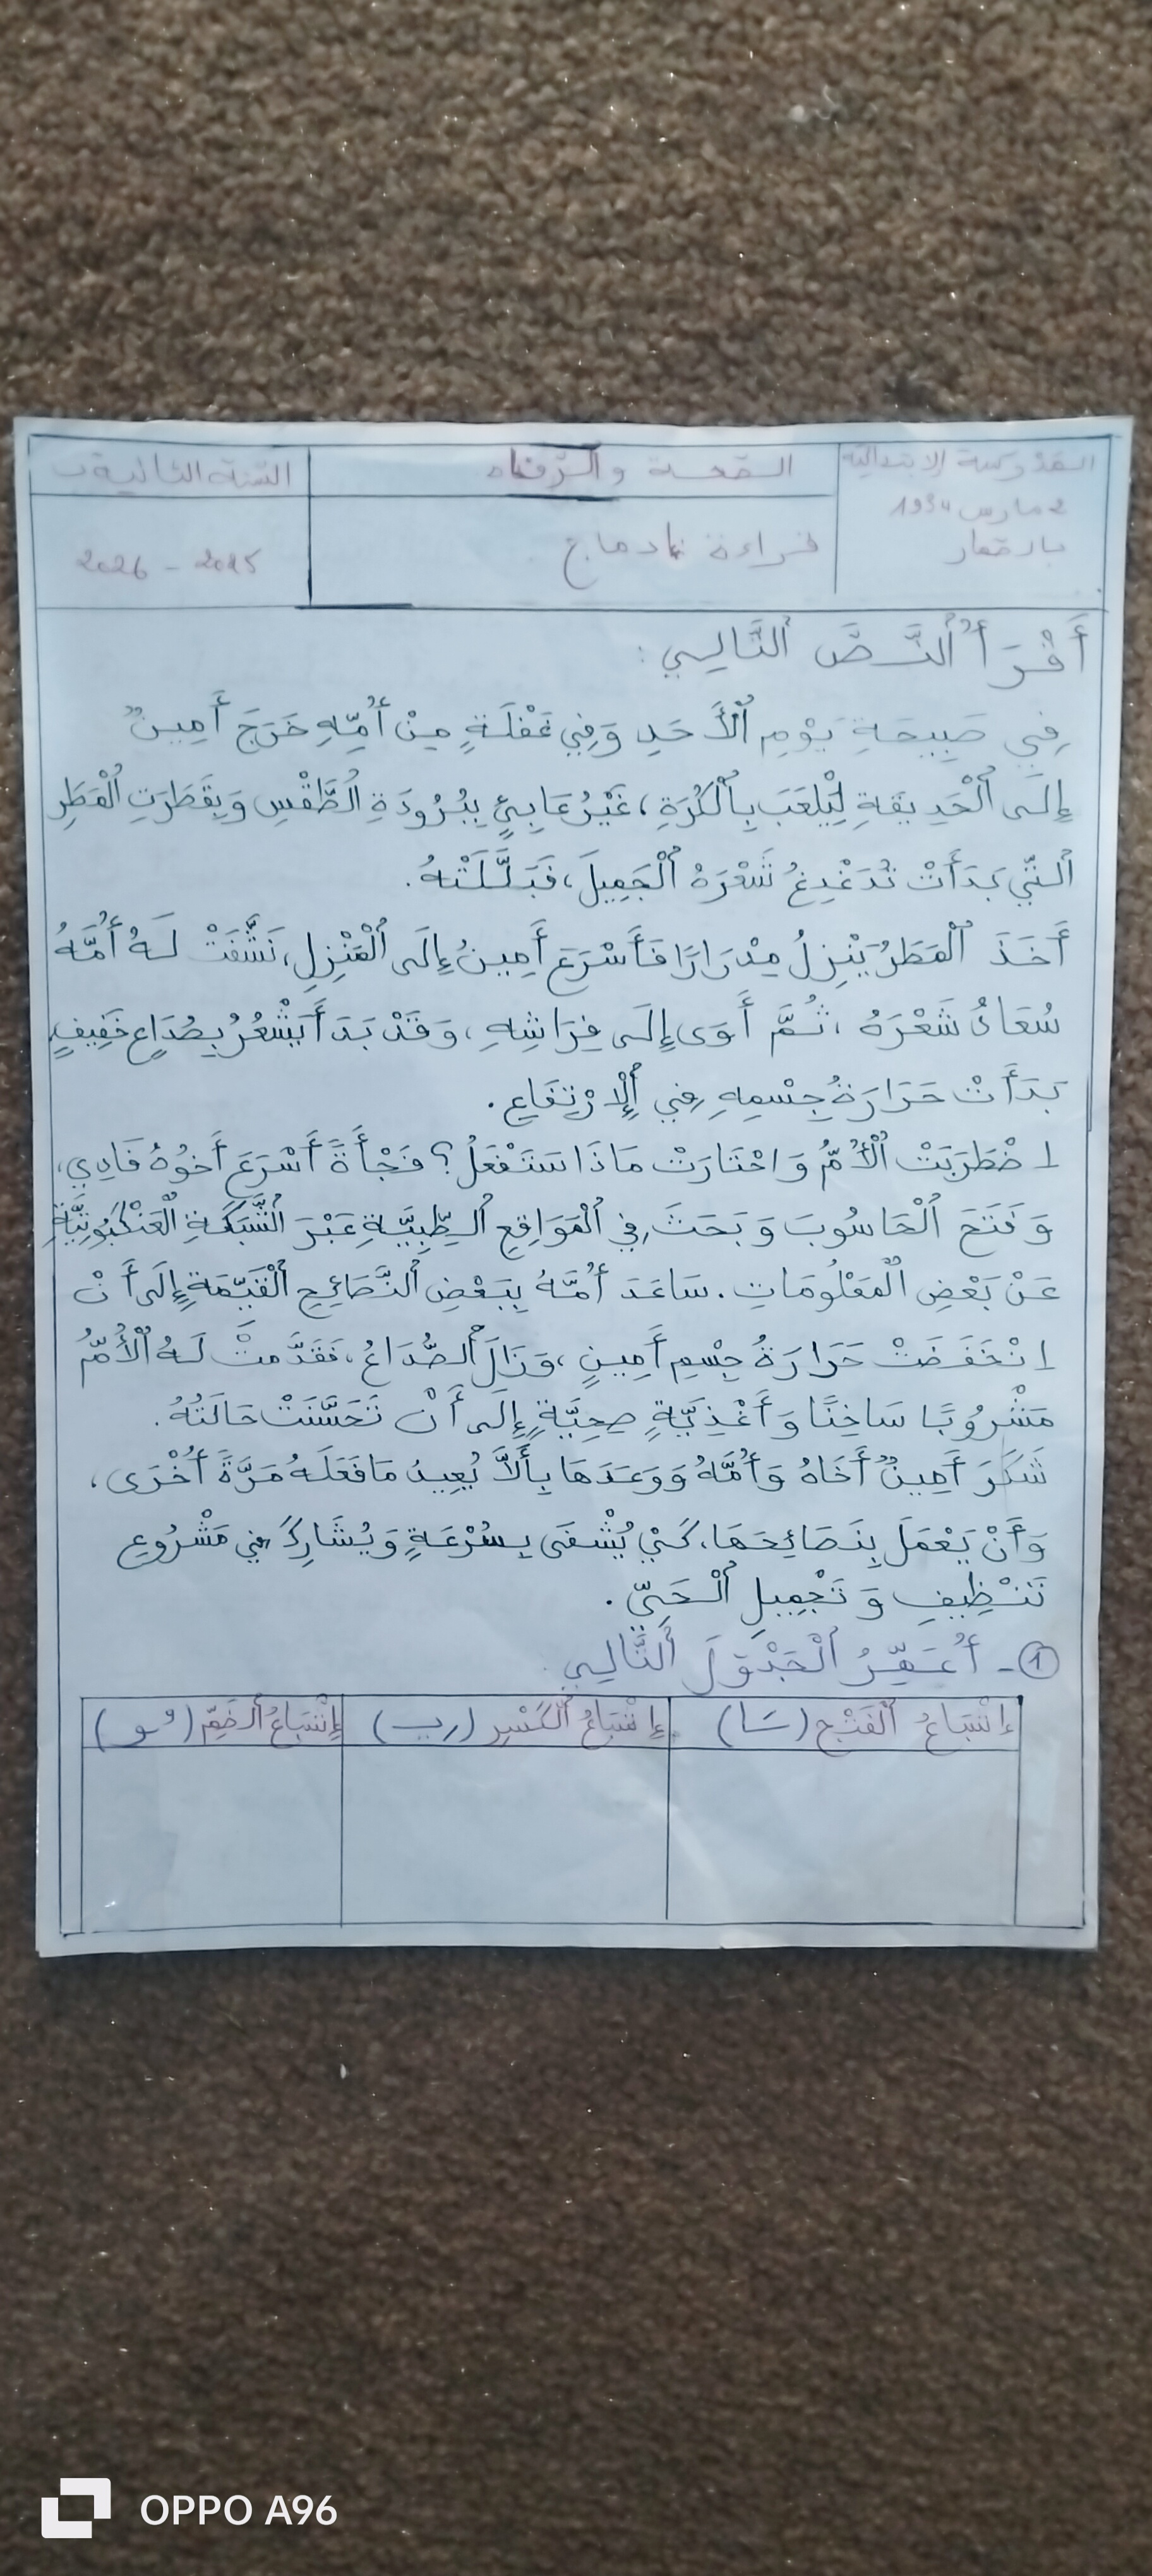 المدرسة الابتدائية
2 مارس 1934
بالرمار
الصحة والرفاه
السنة الثانية ب
قراءة إدماج
2025 - 2026
أَقْرَأُ ٱلنَّصَّ ٱلتَّالِي :
فِي صَبِيحَةِ يَوْمِ ٱلْأَحَدِ وَفِي غَفْلَةٍ مِنْ أُمِّهِ خَرَجَ أَمِينٌ
إِلَى ٱلْحَدِيقَةِ لِيَلْعَبَ بِٱلْكُرَةِ، غَيْرُ عَابِئٍ بِبُرُودَةِ ٱلطَّقْسِ وَبِقَطَرَتِ ٱلْمَطَرِ
ٱلَّتِي بَدَأَتْ تُدَغْدِغُ شَعْرَهُ ٱلْجَمِيلَ، فَبَلَّلَتْهُ.
أَخَذَ ٱلْمَطَرُ يَنْزِلُ مِدْرَارًا فَأَسْرَعَ أَمِينُ إِلَى ٱلْمَنْزِلِ، نَشَّفَتْ لَهُ أُمَّهُ
سُعَادُ شَعْرَهُ ، ثُمَّ أَوَى إِلَى فِرَاشِهِ، وَقَدْ بَدَأَ يَشْعُرُ بِصُدَاعٍ خَفِيفٍ
بَدَأَتْ حَرَارَةُ جِسْمِهِ فِي ٱلْإِرْتِفَاعِ .
اِضْطَرَبَتْ ٱلْأُمُّ وَاحْتَارَتْ مَاذَا سَتَفْعَلُ؟ فَجْأَةً أَسْرَعَ أَخُوهُ فَادِي،
وَفَتَحَ ٱلْحَاسُوبَ وَبَحَثَ فِي ٱلْمَوَاقِعِ ٱلطِّبِيَّةِ عَبْرَ ٱلشَّبَكَةِ ٱلْعَنْكَبُوتِيَّةِ
عَنْ بَعْضِ ٱلْمَعْلُومَاتِ . سَاعَدَ أُمَّهُ بِبَعْضِ ٱلنَّصَائِحِ ٱلْقَيِّمَةِ إِلَى أَنْ
اِنْخَفَضَتْ حَرَارَةُ جِسْمِ أَمِينٍ ، وَزَالَ ٱلصُّدَاعُ، فَقَدَّمَتْ لَهُ ٱلْأُمُّ
مَشْرُوبًا سَاخِنًا وَأَغْذِيَّةٍ صِحِيَّةٍ إِلَى أَنْ تَحَسَّنَتْ حَالَتُهُ.
شَكَرَ أَمِينٌ أَخَاهُ وَأُمَّهُ وَوَعَدَهَا بِأَلَّا يُعِيدَ مَا فَعَلَهُ مَرَّةً أُخْرَى،
وَأَنْ يَعْمَلَ بِنَصَائِحِهَا، كَيْ يُشْفَى بِسُرْعَةٍ وَيُشَارِكَ فِي مَشْرُوعِ
تَنْظِيفِ وَ تَجْمِيلِ ٱلْحَيِّ .
1 - أُعَمِّرُ ٱلْجَدْوَلَ ٱلتَّالِي
إِشْبَاعُ ٱلْفَتْحِ (ـَا)
إِشْبَاعُ ٱلْكَسْرِ (ـِي)
إِشْبَاعُ ٱلضَّمِّ (ـُو)
OPPO A96